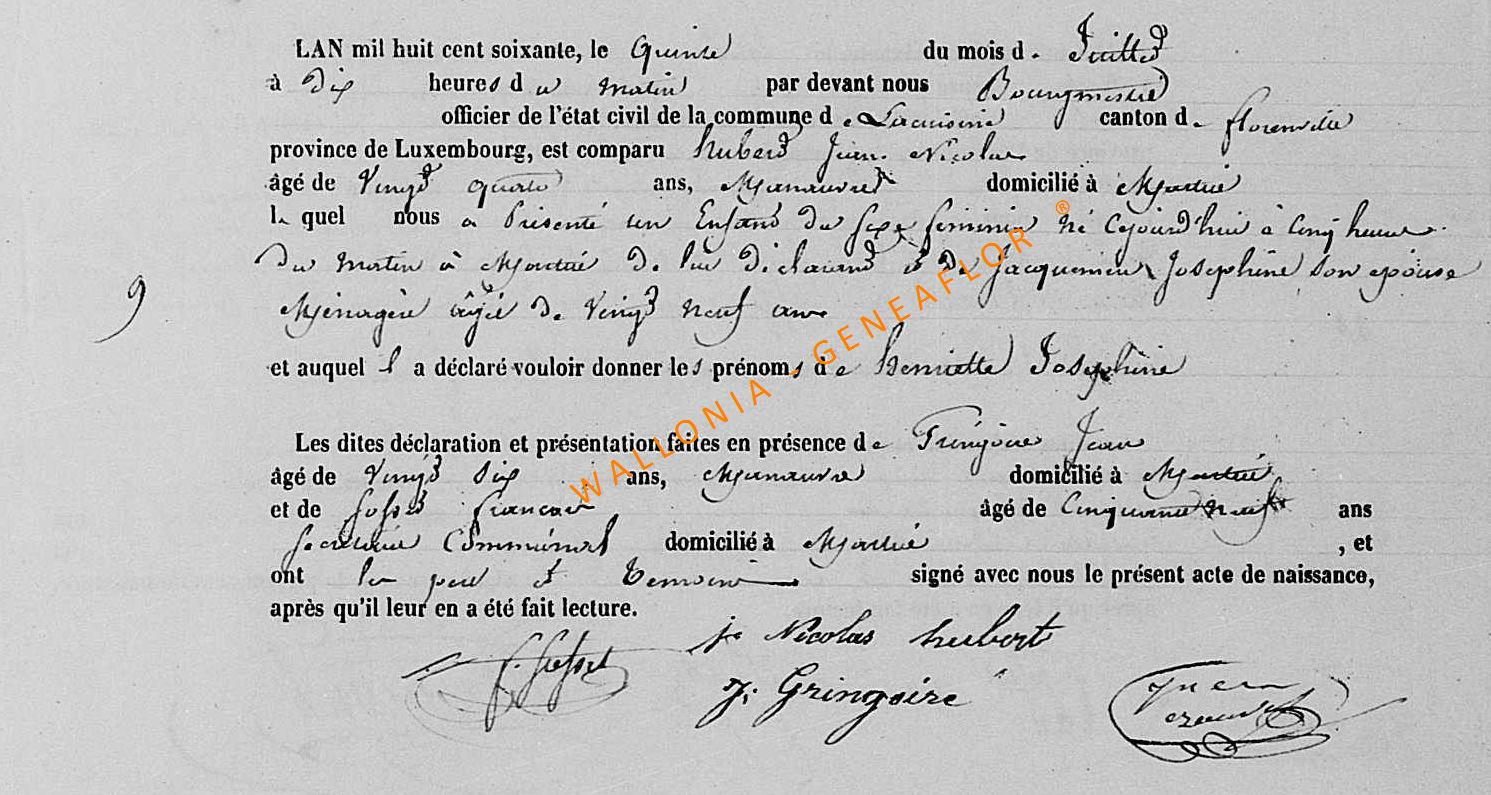 LAN mil huit cent soixante, le Quinze du mois de Juillet
à Dix heures du matin par devant nous Bourgmestre
officier de l'état civil de la commune de Lacuisine canton de florenville
province de Luxembourg, est comparu hubert Jean Nicolas
âgé de Vingt quatre ans, Manœuvre domicilié à Martué
le quel nous a Présenté un Enfant du sexe feminin né Cejourd'hui à Cinq heures
Du Matin à Martué De lui Déclarant et De Jacquemin Joséphine son épouse
9 Ménagère âgée De Vingt neuf ans
et auquel il a déclaré vouloir donner les prénoms de henriette Joséphine
Les dites déclaration et présentation faites en présence de Gringoire Jean
âgé de Vingt Six ans, Manœuvre domicilié à Martué
et de françois âgé de Cinquante neuf ans
Secrétaire Communal domicilié à Martué , et
ont les père et temoins signé avec nous le présent acte de naissance,
après qu'il leur en a été fait lecture.
Jn Nicolas hubert
J. Gringoire
WALLONIA - GENEAFLOR ®